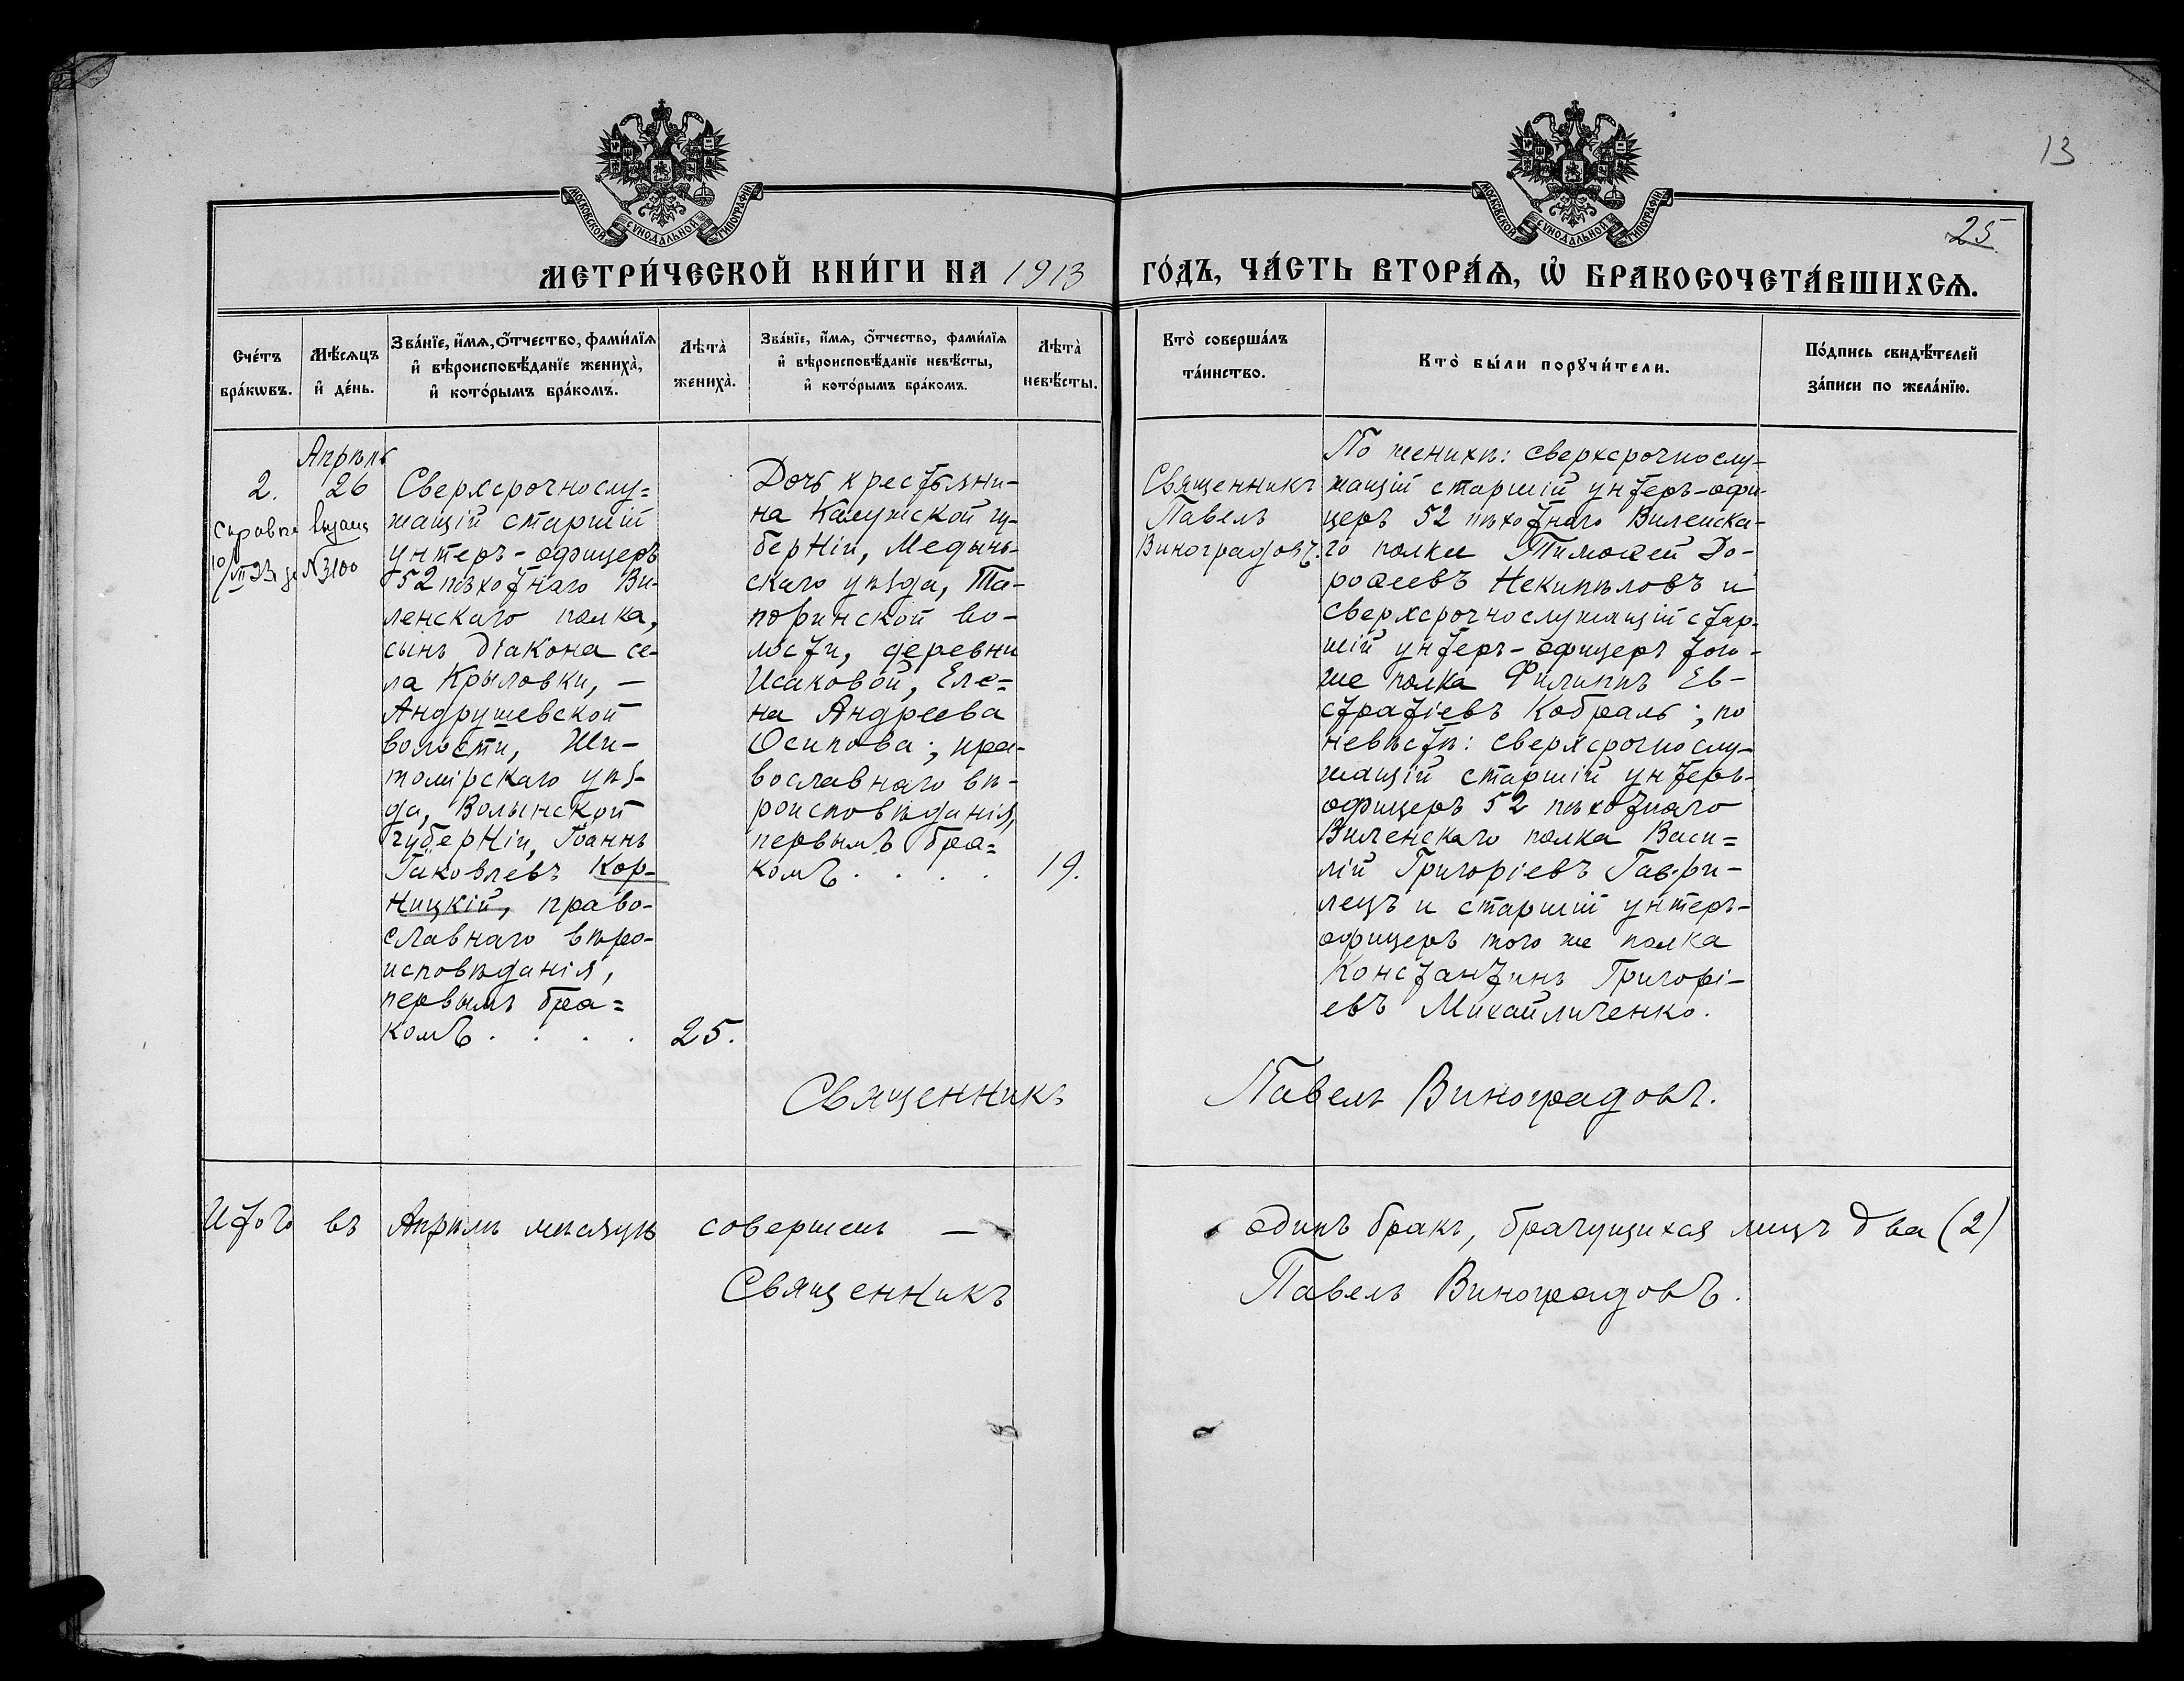 13
25
МОСКОВСКОЙ СУНОДАЛЬНОЙ ТИПОГРАФИИ
МОСКОВСКОЙ СУНОДАЛЬНОЙ ТИПОГРАФИИ
МЕТРИ́ЧЕСКОЙ КНИ́ГИ НА 1913 ГО́ДЪ, ЧА́СТЬ ВТОРА́Ѧ, Ѡ҆ БРАКОСОЧЕТА́ВШИХСѦ.
Сче́тъ
бра́кѡвъ.
Мѣ́сѧцъ
и҆ де́нь.
Зва́нїе, и҆́мѧ, ѻ҆́тчество, фами́лїѧ
и҆ вѣроисповѣ́данїе жениха̀,
и҆ кото́рымъ бра́комъ.
Лѣта̀
жениха̀.
Зва́нїе, и҆́мѧ, ѻ҆́тчество, фами́лїѧ
и҆ вѣроисповѣ́данїе невѣ́сты,
и҆ кото́рымъ бра́комъ.
Лѣта̀
невѣ́сты.
Кто̀ соверша́лъ
та́инство.
Кто̀ бы́ли порꙋчи́тели.
По́дпись свидѣ́телей
за́писи по жела́нїю.
2.
Справка
10/VII 23
Апрѣль
26
выдана
№3100
Сверхсрочнослу=
жащій старшій
унтеръ-офицеръ
52 пѣхотнаго Ви-
ленскаго полка,
сынъ діакона се-
ла Крыловки, —
Андрушевской
волости, Жи-
томірскаго уѣз-
да, Волынской
губерніи, Іоаннъ
Іаковлевъ Кор-
ницкій, право-
славнаго вѣро-
исповѣданія,
первымъ бра=
комъ . . . .
25.
Дочь крестьяни-
на Калужской гу-
берніи, Медынь-
скаго уѣзда, Та-
поринской во-
лости, деревни
Исаковой, Еле=
на Андреева
Осипова; пра-
вославнаго вѣ-
роисповѣданія,
первымъ бра=
комъ . . . .
19.
Священникъ
Павелъ
Виноградовъ.
По женихѣ: сверхсрочнослу-
жащій старшій унтеръ-офи-
церъ 52 пѣхотнаго Виленска-
го полка Тимоѳей До-
роѳеевъ Некипѣловъ и
сверхсрочнослужащій стар-
шій унтеръ-офицеръ того-
же полка Филиппъ Ев-
стратіевъ Кобраль; по
невѣстѣ: сверхсрочнослу-
жащій старшій унтеръ-
офицеръ 52 пѣхотнаго
Виленскаго полка Васи=
лій Григоріевъ Гаври-
лецъ и старшій унтеръ-
офицеръ того же полка
Константинъ Григорі-
евъ Михайличенко.
Священникъ Павелъ Виноградовъ.
Итого въ Апрѣлѣ мѣсяцѣ совершенъ — одинъ бракъ, брачущихся лицъ два (2)
Священникъ Павелъ Виноградовъ.